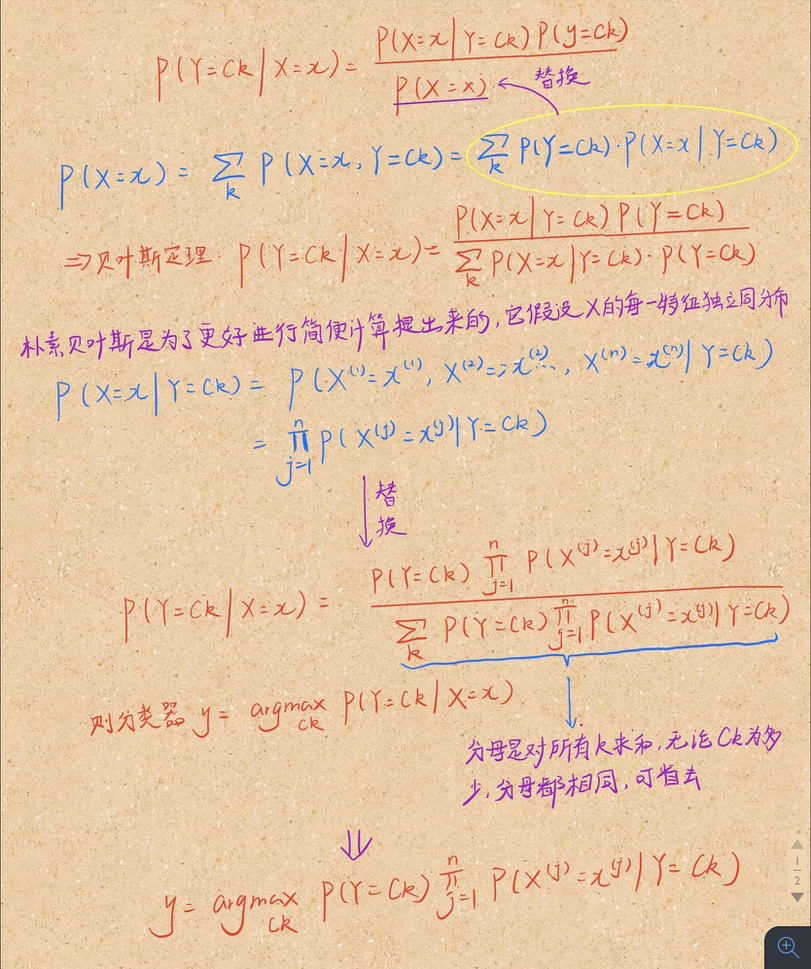 P(Y=Ck|X=x)= P(X=x|Y=Ck)P(y=Ck) / P(X=x)
替换
P(X=x)= ∑k P(X=x,Y=Ck)= ∑k P(Y=Ck)·P(X=x|Y=Ck)
⇒贝叶斯定理: P(Y=Ck|X=x)= P(X=x|Y=Ck)P(Y=Ck) / ∑k P(X=x|Y=Ck)·P(Y=Ck)
朴素贝叶斯是为了更好进行简便计算提出来的,它假设X的每一特征独立同分布
P(X=x|Y=Ck)= P(X⁽¹⁾=x⁽¹⁾, X⁽²⁾=;x⁽²⁾..., X⁽ⁿ⁾=x⁽ⁿ⁾|Y=Ck)
= ∏ⁿj=1 P(X⁽ʲ⁾=x⁽ʲ⁾|Y=Ck)
替
换
P(Y=Ck|X=x)= P(Y=Ck) ∏ⁿj=1 P(X⁽ʲ⁾=x⁽ʲ⁾|Y=Ck) / ∑k P(Y=Ck) ∏ⁿj=1 P(X⁽ʲ⁾=x⁽ʲ⁾|Y=Ck)
则分类器 y= argmax Ck P(Y=Ck|X=x)
分母是对所有k求和,无论Ck为多
少,分母都相同,可省去
⇓
y= argmax Ck P(Y=Ck) ∏ⁿj=1 P(X⁽ʲ⁾=x⁽ʲ⁾|Y=Ck)
1
2